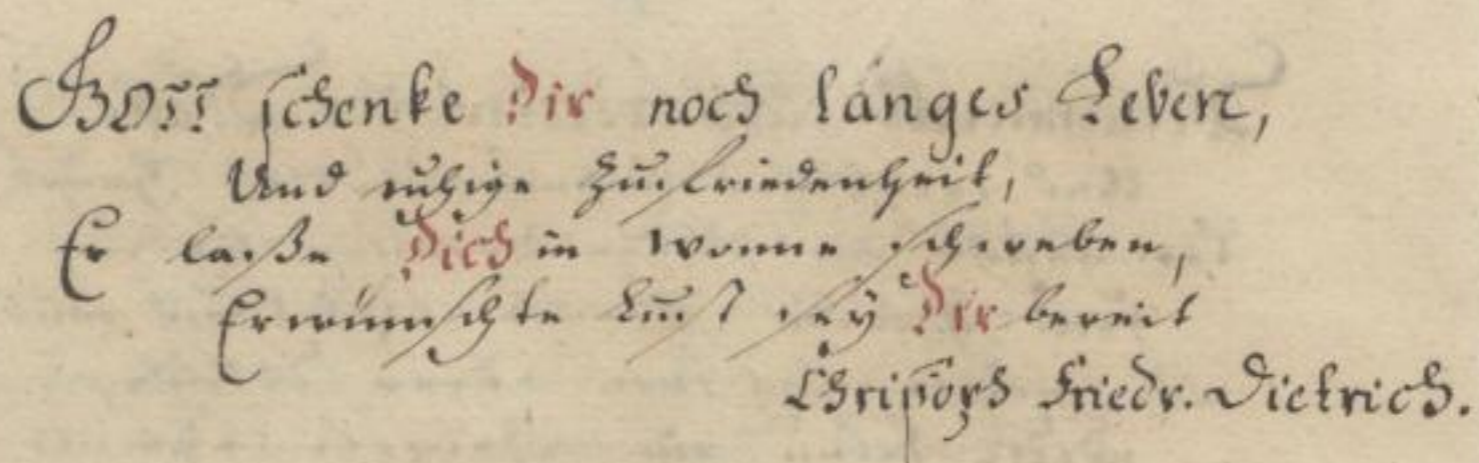 GOTT schenke Dir noch langes Leben,
Und ruhige Zufriedenheit,
Er laße Dich in Wonne schweben,
Erwünschte Lust sey Dir bereit
Christoph Friedr. Dietrich.